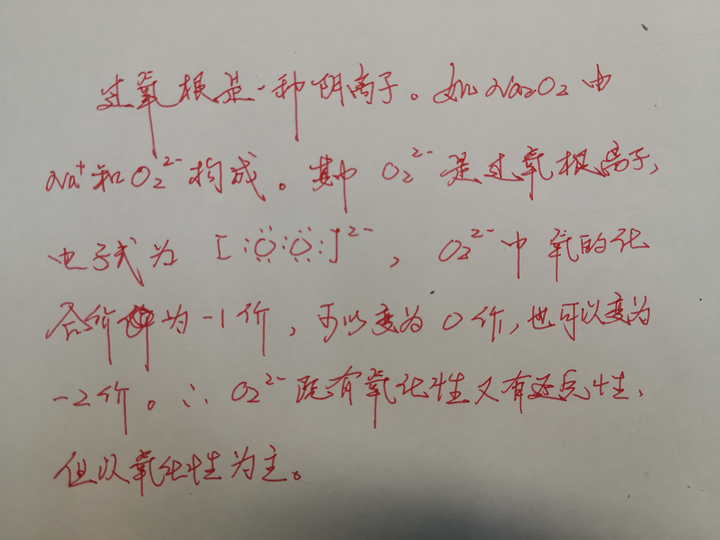 过氧根是一种阴离子。如Na₂O₂由
Na⁺和O₂²⁻构成。其中 O₂²⁻是过氧根离子,
电子式为 [:Ö:Ö:]²⁻, O₂²⁻中氧的化
合价为-1价,可以变为0价,也可以变为
-2价。∴ O₂²⁻既有氧化性又有还原性,
但以氧化性为主。